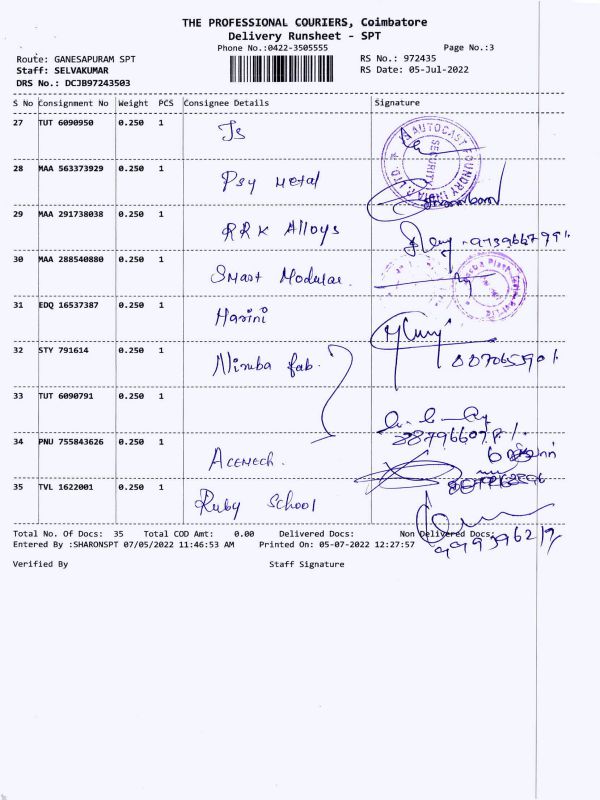 THE PROFESSIONAL COURIERS, Coimbatore
Delivery Runsheet - SPT
Phone No.:0422-3505555 Page No.:3
Route: GANESAPURAM SPT RS No.: 972435
Staff: SELVAKUMAR RS Date: 05-Jul-2022
DRS No.: DCJB97243503
S No Consignment No Weight PCS Consignee Details Signature
27 TUT 6090950 0.250 1 Js
AUTOCAST FOUNDRY INDIA SECURITY
28 MAA 563373929 0.250 1 Psy Metal
29 MAA 291738038 0.250 1 RRK Alloys
30 MAA 288540880 0.250 1 Smart Modular.
31 EDQ 16537387 0.250 1 Harini
32 STY 791614 0.250 1 Nimba fab.
33 TUT 6090791 0.250 1
34 PNU 755843626 0.250 1 Acemech.
35 TVL 1622001 0.250 1 Ruby School
Total No. Of Docs: 35 Total COD Amt: 0.00 Delivered Docs: Non Delivered Docs:
Entered By :SHARONSPT 07/05/2022 11:46:53 AM Printed On: 05-07-2022 12:27:57
Verified By Staff Signature